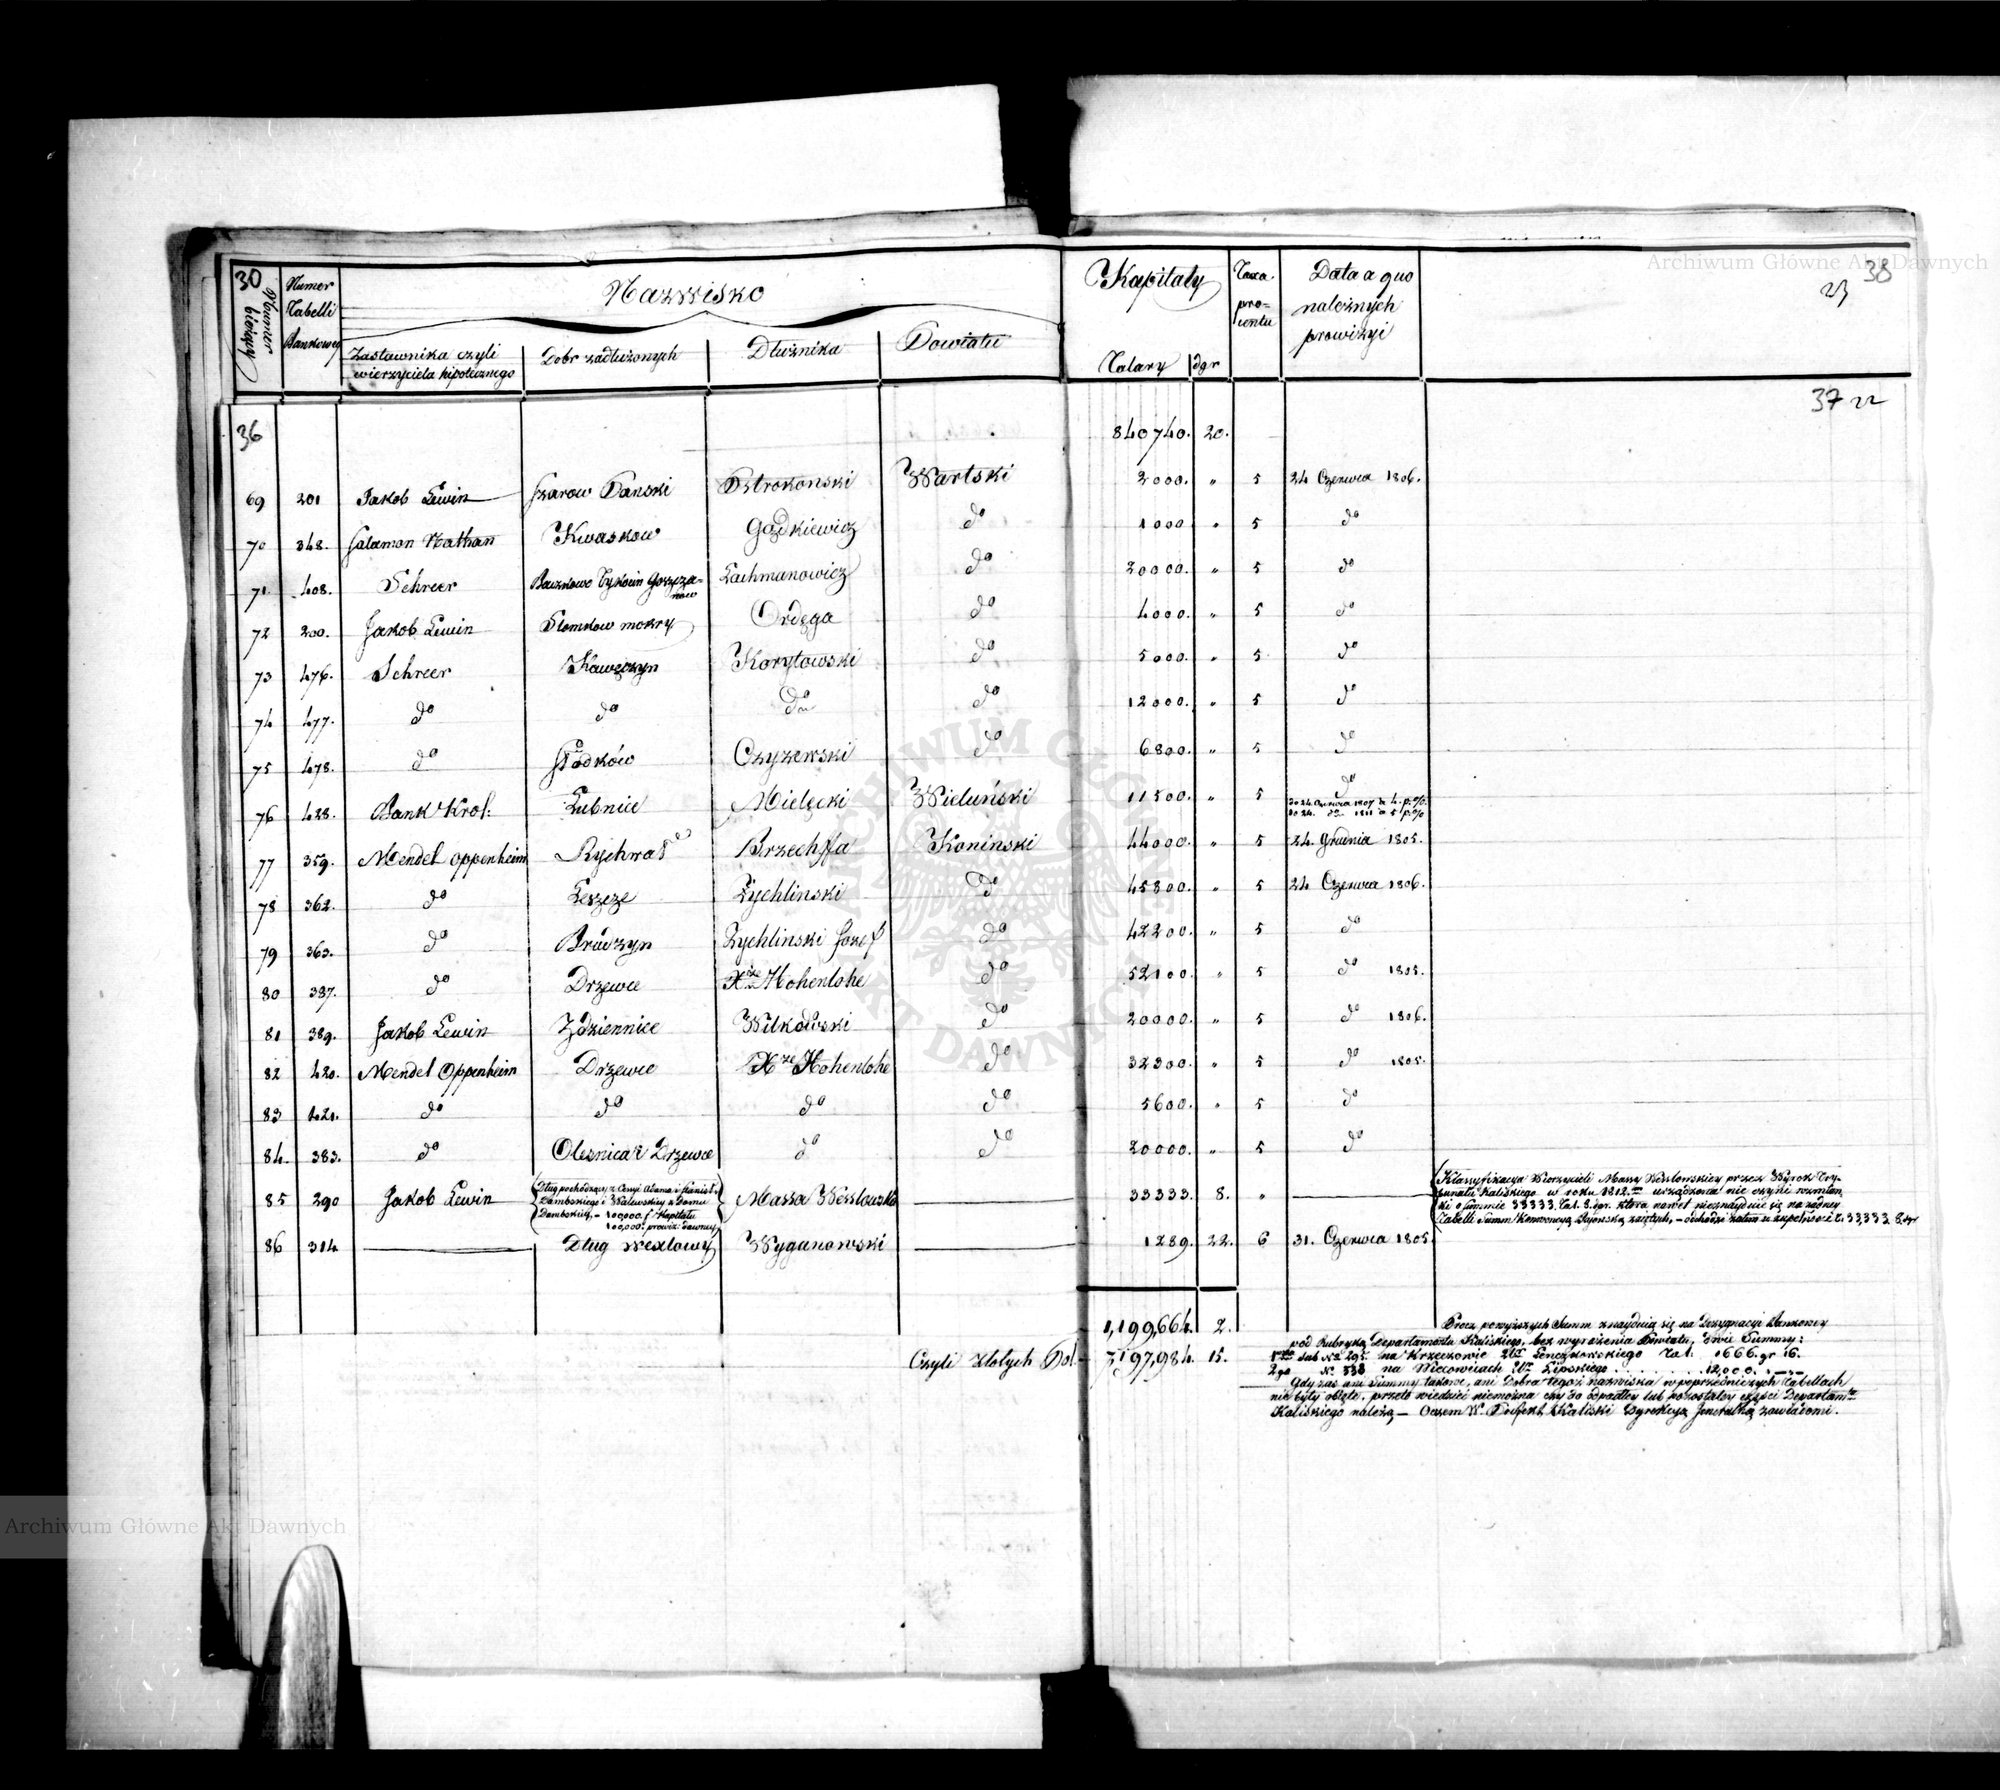 Archiwum Główne Akt Dawnych
30 Numer bieżący
Numer Tabelli Bankowey
Nazwisko
Kapitały
Taxa procentu
Data a quo należnych prowizyi
38
23
Zastawnika czyli wierzyciela hipotecznego
Dobr zadłużonych
Dłużnika
Powiatu
Talary dgr
37 22
36 840740. 20.
69 201 Jakob Lewin Szarow Panski Pstrokonski Wartski 2000. " 5 24 Czerwca 1806.
70 348. Salamon Nathan Kwaskow Gozdkiewicz do 1000 " 5 do
71 408. Schreer Baczkowo Tykocin Goszczanow Lachmanowicz do 20000. " 5 do
72 200. Jakob Lewin Słomkow mokry Ordęga do 4000. " 5 do
73 476. Schreer Kawęczyn Korytowski do 5000. " 5 do
74 477. do do do do 12000. " 5 do
75 478. do Czyzewski do 6800. " 5 do
76 428. Bank Krol: Łubnice Mielęcki Wieluński 11500. " 5 do
do 24 Czerwca 1807 à 4. p.%
do 24. do 1811 à 5 p.%
77 359. Mendel Oppenheim Rychwał Brzechffa Koninski 44000. " 5 24. Grudnia 1805.
78 362. do Leszcze Zychlinski do 45800. " 5 24 Czerwca 1806.
79 363. do Brudzyn Zychlinski Jozef do 42200. " 5 do
80 387. do Drzewce Xże Hohenlohe do 52100. " 5 do 1805.
81 389. Jakob Lewin Zdziennice Wilkowski do 20000. " 5 do 1806.
82 420. Mendel Oppenheim Drzewce Xże Hohenlohe do 32300. " 5 do 1805.
83 421. do do do do 5600. " 5 do
84. 383. do Olesnica i Drzewce do do 20000. " 5 do
85 290 Jakob Lewin
Dług pochodzący z Cessyi Adama i Stanisł:
Dambskiego i Walewskiey z Domu
Dambskiey, – 100,000. f Kapitału
100,000. prowiz: dawney
Massa Wessłowska 33333. 8. "
Klassyfikacya Wierzycieli Massy Wessłowskiey przez Wyrok Trybunału Kaliskiego w roku 1812. urządzona nie czyni wzmianki o Summie 33333. Tal. 8. dgr. która nawet nieznayduie się na żadney Tabelli Summ Konwencyą Bajońską zaiętych, – odchodzi zatem w zupełności t. 33,333. 8. dgr
86 314 Dług wexlowy Wyganowski 1289. 22. 6 31. Czerwca 1805.
1,199,664. 2.
Czyli złotych Pol. 7,197,984. 15.
Procz powyższych Summ znayduią się na Dezygnacyi Bankowey
pod Rubryką Departamentu Kaliskiego, bez wyrażenia Powiatu, dwie Summy:
1ma sub No 295. na Krzeczowie Łenczkowskiego Tal. 1666. gr 16.
2ga No. 338 na Lipskiego 12,000. –
Gdy zas ani Summy takowe, ani Dobra tegoż nazwiska w poprzedniczych Tabellach
nie były obięte, przeto wiedzieć niemożna czy do odpadłey lub pozostałey części Departam:
Kaliskiego należą – Oczem W. Prefekt Kaliski Dyrekcyą Jeneralną zawiadomi.
ARCHIWUM GŁÓWNE AKT DAWNYCH
Archiwum Główne Akt Dawnych